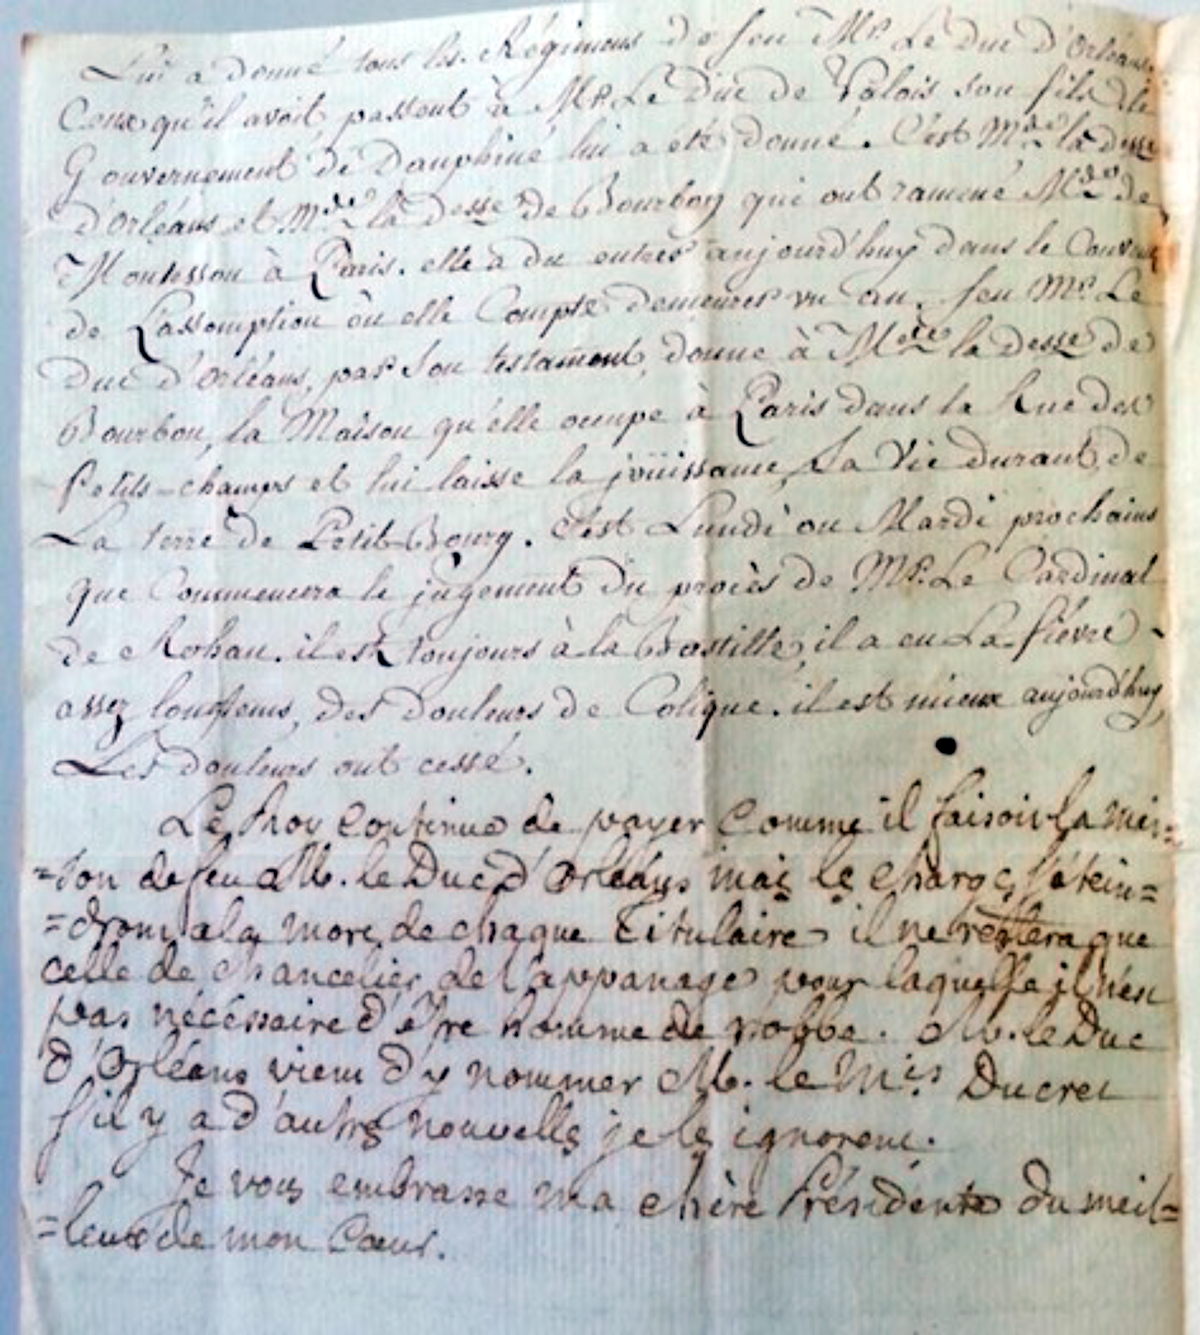 Lui a donné tous les Régimens de feu Mr. Le Duc d'Orléans
Ceux qu'il avoit passent à Mr. Le Duc de Valois son fils le
Gouvernement de Dauphiné lui a été donné. C'est Mde. la Desse
d'Orléans et Mde. la Desse de Bourbon qui ont ramené Mde. de
Montesson à Paris. elle a du entrer aujourd'huy dans le Couvent
de L'assomption où elle Compte demeurer un an. feu Mr. Le
Duc d'Orléans, par son testament, donne à Mde. la Desse de
Bourbon, la Maison qu'elle occupe à Paris dans la Rue des
Petits-champs et lui laisse la jouissance, sa Vie durant, de
La terre de Petit-Bourg. C'est Lundi ou Mardi prochains
que Commencera le jugement du procès de Mr. Le Cardinal
de Rohan. il est toujours à la Bastille, il a eu La fièvre
assez longtems, des douleurs de Colique. il est mieux aujourd'huy,
Les douleurs ont cessé.
Le Roy continue de payer comme il faisoit la mai=
=son de feu M. le Duc d'Orléans mais les charges s'étein=
=dront à la mort de chaque Titulaire il ne restera que
celle de chancelier de l'appanage pour laquelle il n'est
pas nécéssaire d'être homme de robbe. M. le Duc
d'Orléans vient d'y nommer M. le Mis Ducrest
s'il y a d'autres nouvelles je les ignorent.
Je vous embrasse ma chère Présidente du meil=
=leur de mon Cœur.